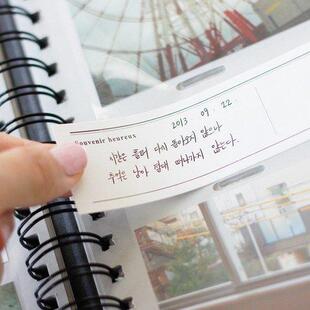 2013 09. 22.
Souvenir heureux
시간은 흘러 다시 돌아오지 않으나
추억은 남아 절대 떠나가지 않는다.